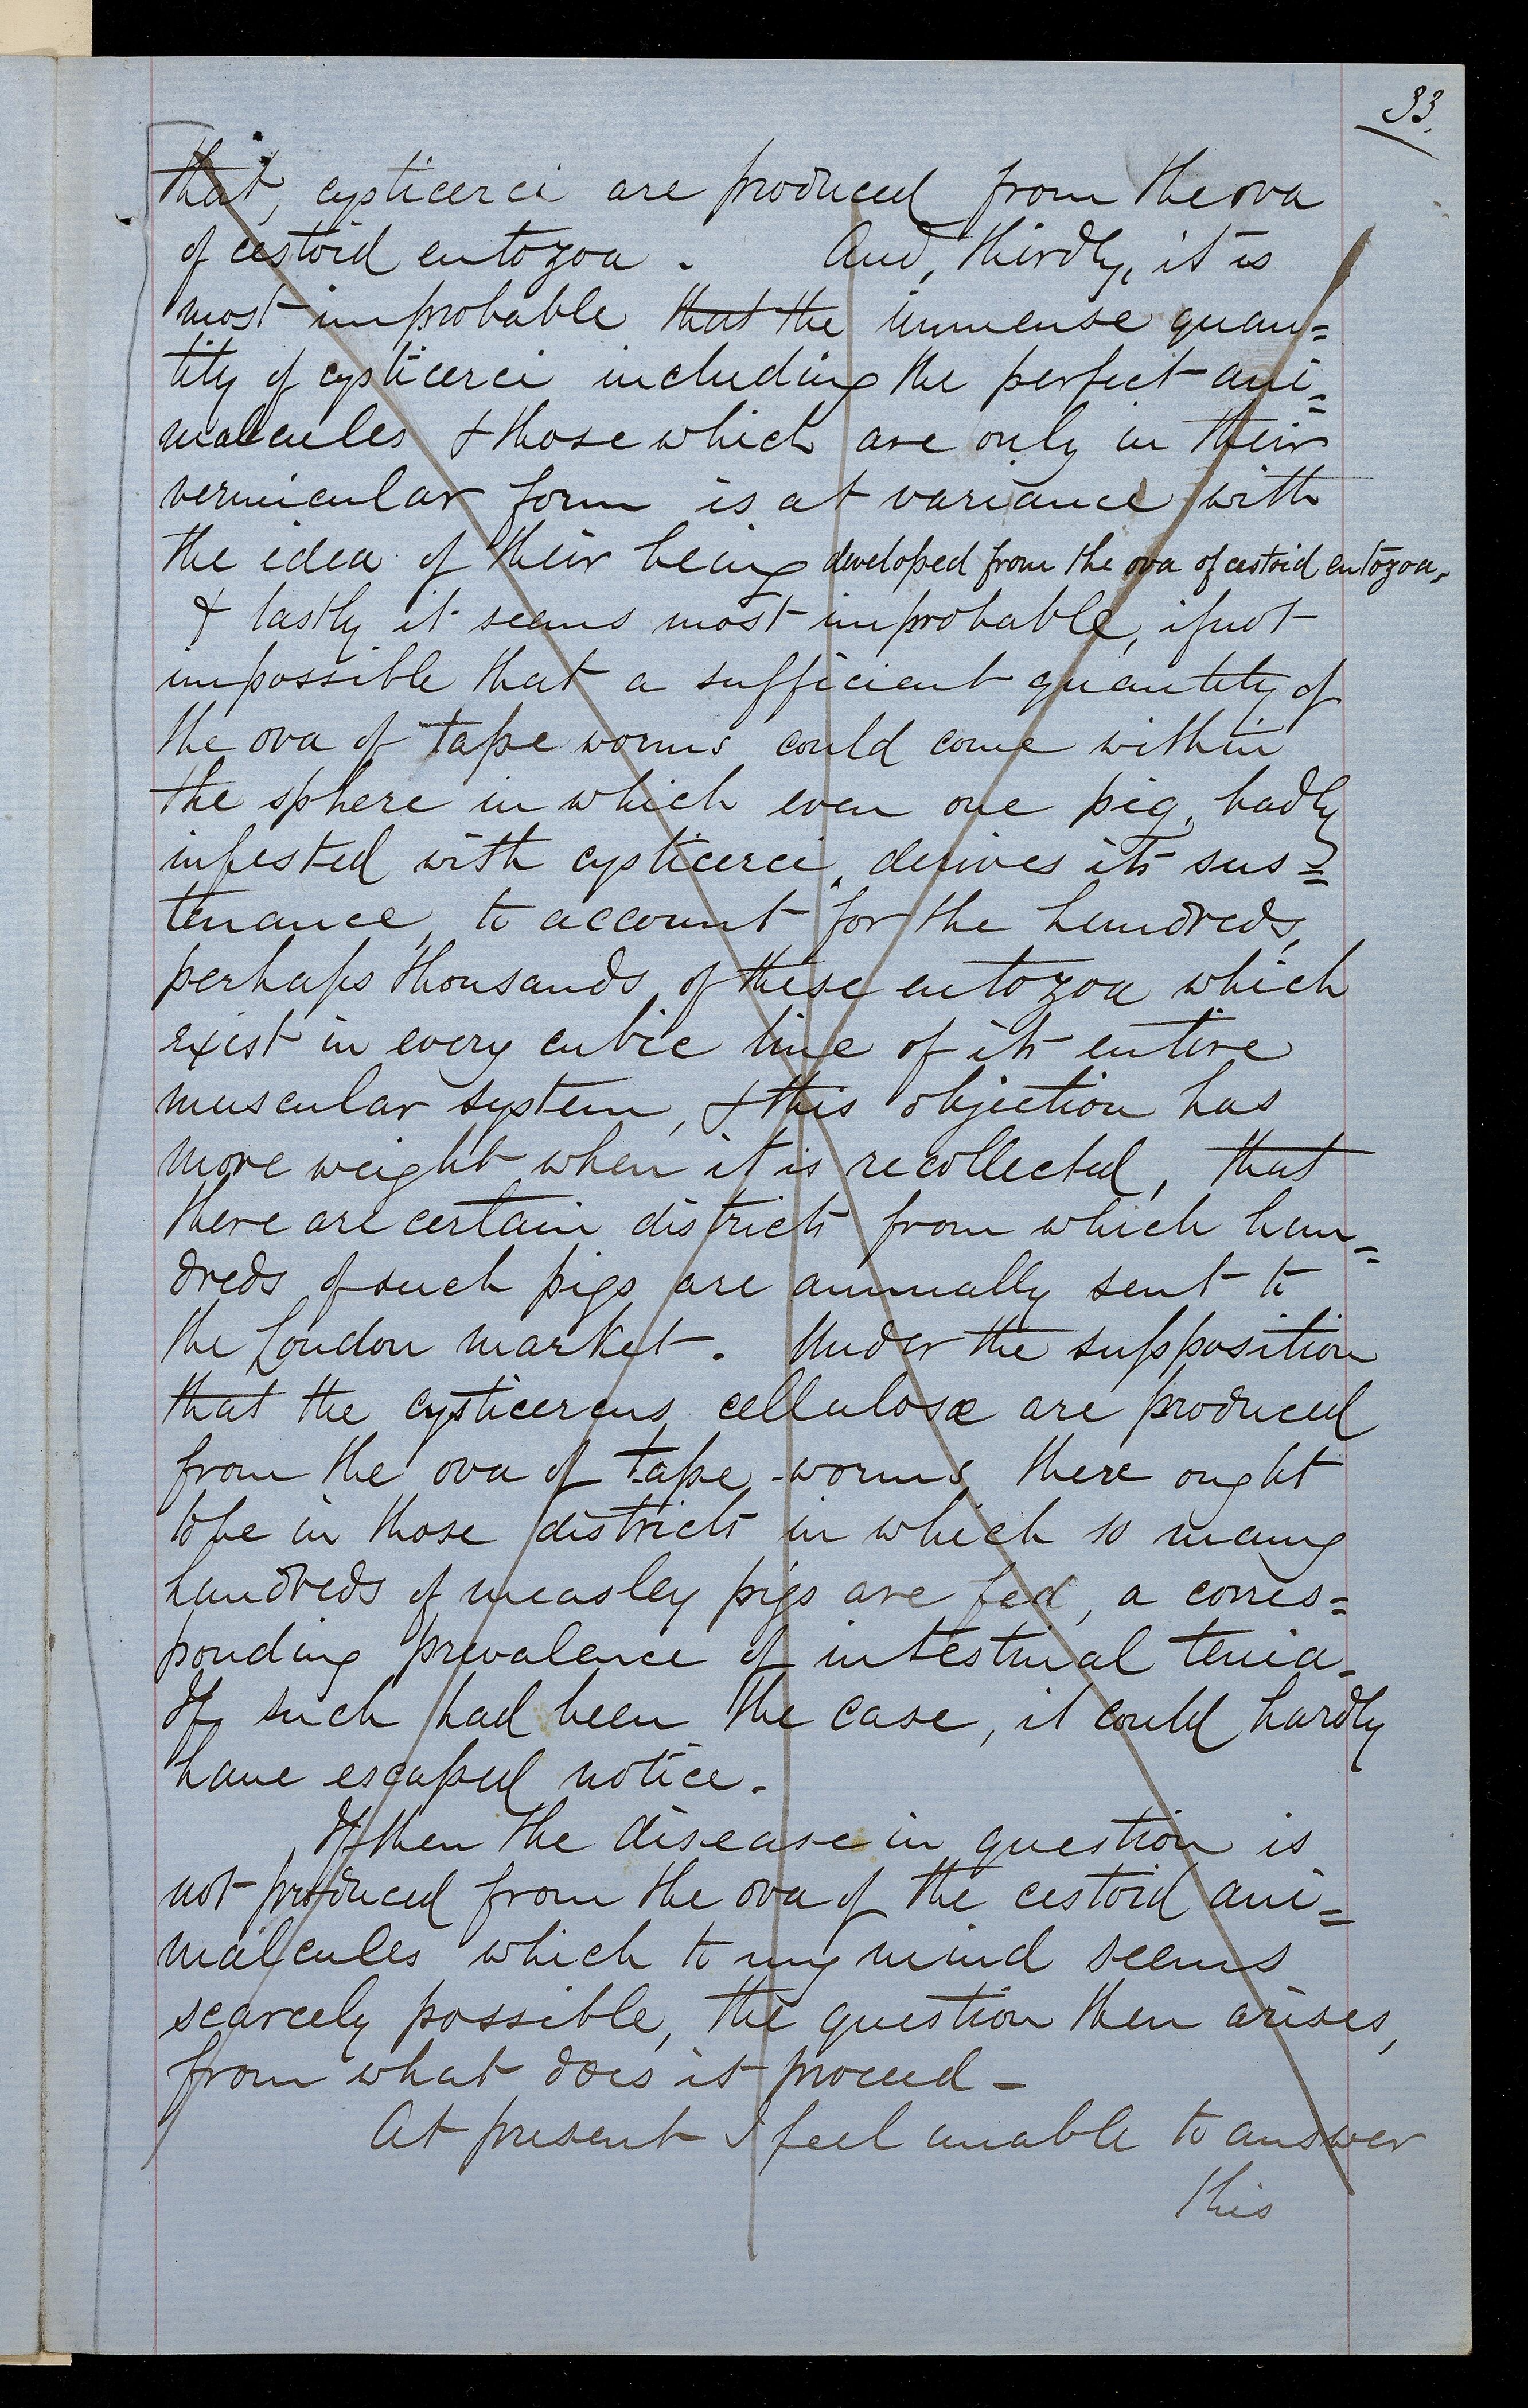 33.
that, cysticerci are produced from the ova
of cestoid entozoa. And, thirdly, it is
most improbable that the immense quan=
tity of cysticerci including the perfect ani=
malcules & those which are only in their
vermicular form is at variance with
the idea of their being developed from the ova of cestoid entozoa,
& lastly it seems most improbable, if not
impossible that a sufficient quantity of
the ova of tape worms could come within
the sphere in which even one pig, badly
infested with cysticerci, derives its sus=
tenance, to account for the hundreds,
perhaps thousands, of these entozoa which
exist in every cubic line of its entire
muscular system, & this objection has
more weight when it is recollected, that
there are certain districts from which hun=
dreds of such pigs are annually sent to
the London market. Under the supposition
that the cysticercus cellulosæ are produced
from the ova of tape-worms, there ought
to be in those districts in which so many
hundreds of measley pigs are fed, a corres=
ponding prevalence of intestinal tenia.
If such had been the case, it could hardly
have escaped notice.
If then the disease in question is
not produced from the ova of the cestoid ani=
malcules which to my mind seems
scarcely possible, the question then arises,
from what does it proceed -
At present I feel unable to answer
this